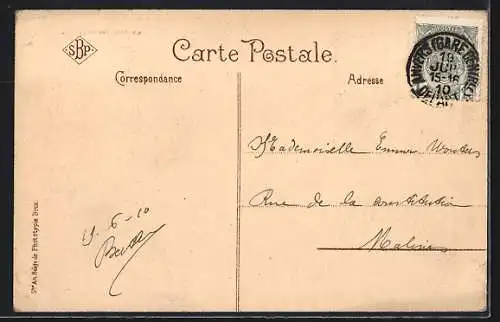 SBP
Carte Postale.
Correspondance
Adresse
ANVERS (GARE CENTRALE)
19
JUI
15-16
10
DEPART
Mademoiselle Emma Wouters
Rue de la constitution
Malines
19-6-10
Sté An. Belge de Phototypie Brux.